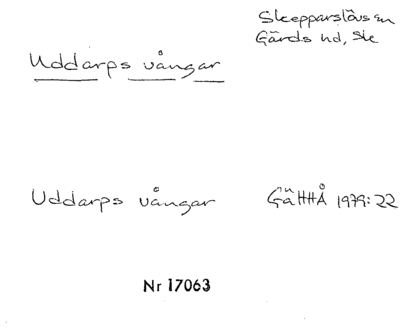 Skepparslövs sn
Gärds hd, Sk
Uddarps vångar
Uddarps vångar GäHHÅ 1979:22
Nr 17063